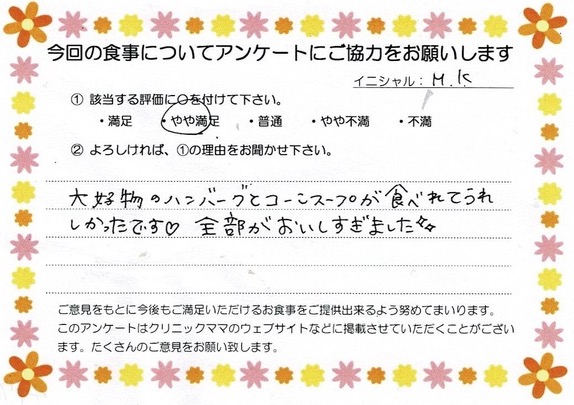 今回の食事についてアンケートにご協力をお願いします
イニシャル：M.K
① 該当する評価に○を付けて下さい。
・満足 ・やや満足 ・普通 ・やや不満 ・不満
② よろしければ、①の理由をお聞かせ下さい。
大好物のハンバーグとコーンスープが食べれてうれ
しかったです♡ 全部がおいしすぎました☆☆
ご意見をもとに今後もご満足いただけるお食事をご提供出来るよう努めてまいります。
このアンケートはクリニックママのウェブサイトなどに掲載させていただくことがござい
ます。たくさんのご意見をお願い致します。